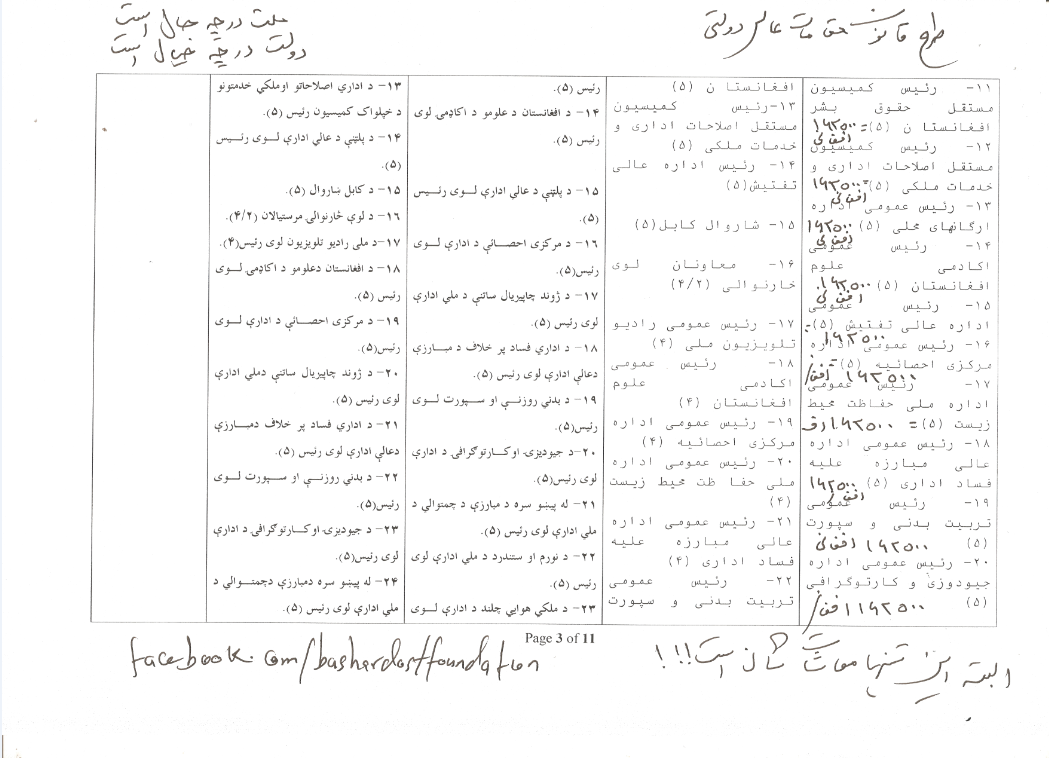 طرح قانون حقوق مقامات عالی دولتی
ملت در چه حال است
دولت در چه خیال است
۱۱- رئیس کمیسیون
مستقل حقوق بشر
افغانستان (۵) = ۱۹۲۵۰۰ افغانی
۱۲- رئیس کمیسیون
مستقل اصلاحات اداری و
خدمات ملکی (۵) = ۱۹۲۵۰۰ افغانی
۱۳- رئیس عمومی اداره
ارگانهای محلی (۵) ۱۹۲۵۰۰ افغانی
۱۴- رئیس عمومی
اکادمی علوم
افغانستان (۵) ۱۹۲۵۰۰ افغانی
۱۵- رئیس عمومی
اداره عالی تفتیش (۵) = ۱۹۲۵۰۰
۱۶- رئیس عمومی اداره
مرکزی احصائیه (۵) = ۱۹۲۵۰۰ افغ/
۱۷- رئیس عمومی
اداره ملی حفاظت محیط
زیست (۵) = ۱۹۲۵۰۰ اف
۱۸- رئیس عمومی اداره
عالی مبارزه علیه
فساد اداری (۵) ۱۹۲۵۰۰ افغ
۱۹- رئیس عمومی
تربیت بدنی و سپورت
(۵) ۱۹۲۵۰۰ افغانی
۲۰- رئیس عمومی اداره
جیودوزی و کارتوگرافی
(۵) ۱۹۲۵۰۰ افغ/
افغانستان (۵)
۱۳-رئیس کمیسیون
مستقل اصلاحات اداری و
خدمات ملکی (۵)
۱۴- رئیس اداره عالی
تفتیش(۵)
۱۵- شاروال کابل(۵)
۱۶- معاونان لوی
خارنوالی (۴/۲)
۱۷- رئیس عمومی رادیو
تلویزیون ملی (۴)
۱۸- رئیس عمومی
اکادمی علوم
افغانستان (۴)
۱۹- رئیس عمومی اداره
مرکزی احصائیه (۴)
۲۰- رئیس عمومی اداره
ملی حفاظت محیط زیست
(۴)
۲۱- رئیس عمومی اداره
عالی مبارزه علیه
فساد اداری (۴)
۲۲- رئیس عمومی
تربیت بدنی و سپورت
رئیس (۵).
۱۴- د افغانستان د علومو د اکاډمۍ لوی
رئیس (۵).
۱۵- د پلټنې د عالي ادارې لوی رئیس
(۵).
۱۶- د مرکزی احصائې د ادارې لوی
رئیس(۵).
۱۷- د ژوند چاپیریال ساتنې د ملي ادارې
لوی رئیس (۵).
۱۸- د اداري فساد پر خلاف د مبارزې
دعالي ادارې لوی رئیس (۵).
۱۹- د بدني روزنې او سپورت لوی
رئیس(۵).
۲۰- د جیودیزۍ اوکارتوګرافۍ د ادارې
لوی رئیس(۵).
۲۱- له پیښو سره د مبارزې د چمتوالي د
ملي ادارې لوی رئیس (۵).
۲۲- د نورم او ستندرد د ملي ادارې لوی
رئیس (۵).
۲۳- د ملکي هوايي چلند د ادارې لوی
۱۳- د اداري اصلاحاتو اوملکي خدمتونو
د خپلواک کمیسیون رئیس (۵).
۱۴- د پلټنې د عالي ادارې لوی رئیس
(۵).
۱۵- د کابل ښاروال (۵).
۱۶- د لوې څارنوالۍ مرستیالان (۴/۲).
۱۷- د ملی رادیو تلویزیون لوی رئیس(۴).
۱۸- د افغانستان دعلومو د اکاډمۍ لوی
رئیس (۵).
۱۹- د مرکزی احصائې د ادارې لوی
رئیس(۵).
۲۰- د ژوند چاپیریال ساتنې دملي ادارې
لوی رئیس (۵).
۲۱- د اداري فساد پر خلاف دمبارزې
دعالي ادارې لوی رئیس (۵).
۲۲- د بدني روزنې او سپورت لوی
رئیس(۵).
۲۳- د جیودیزۍ اوکارتوګرافۍ د ادارې
لوی رئیس (۵).
۲۴- له پیښو سره دمبارزې دچمتوالي د
ملي ادارې لوی رئیس (۵).
Page 3 of 11
البته این تنها معاشات شان است!!!
facebook.com/bashardostfoundation